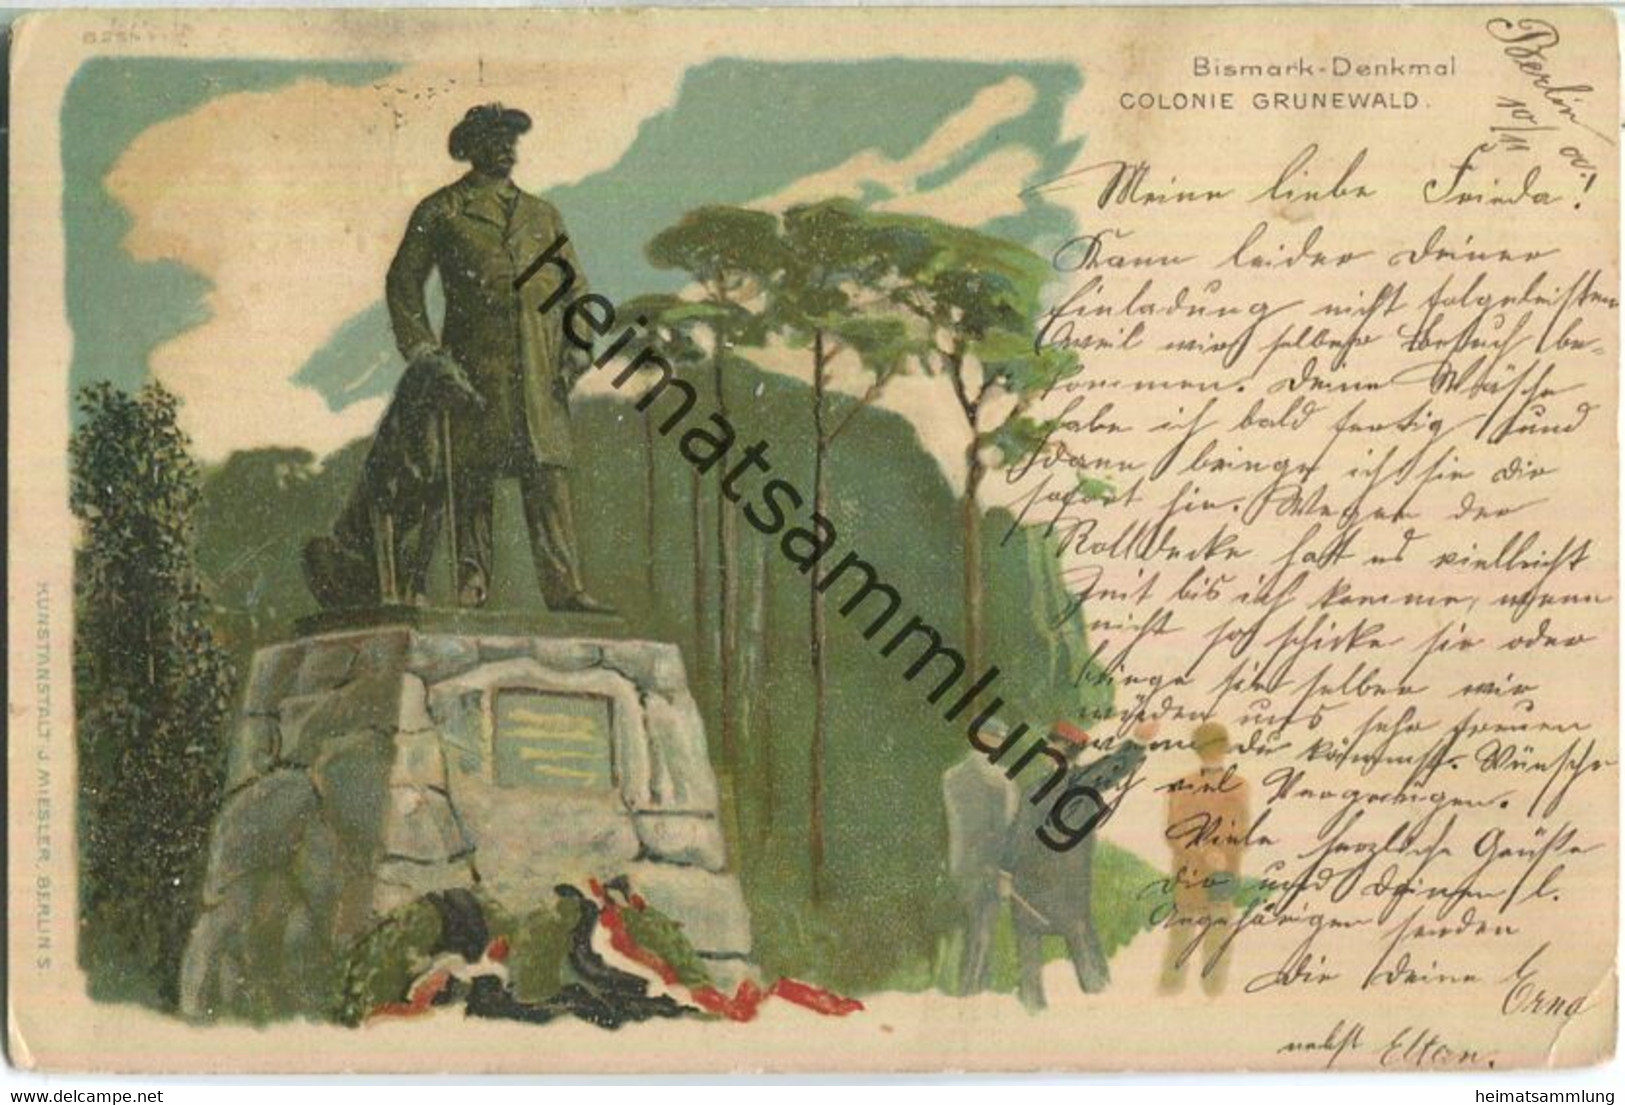 Bismark-Denkmal
COLONIE GRUNEWALD.
Berlin
10/11
Meine liebe Frieda!
Kann leider Deiner
Einladung nicht folgeleisten
weil wir selber Besuch be-
kommen. Deine Wäsche
habe ich bald fertig und
dann bringe ich sie Dir
sofort hin. Wegen der
Rolldecke hatt es vielleicht
Zeit bis ich komme, wenn
nicht so schicke sie oder
bringe sie selber wir
würden uns sehr freuen
wenn du kämmst. Wünsche
Euch viel Vergnügen.
Viele herzliche Grüße
Dir und Deinen l.
Angehörigen senden
Die Deine Erna
nebst Eltern.
KUNSTANSTALT J MIESLER, BERLIN S
heimatsammlung
heimatsammlung